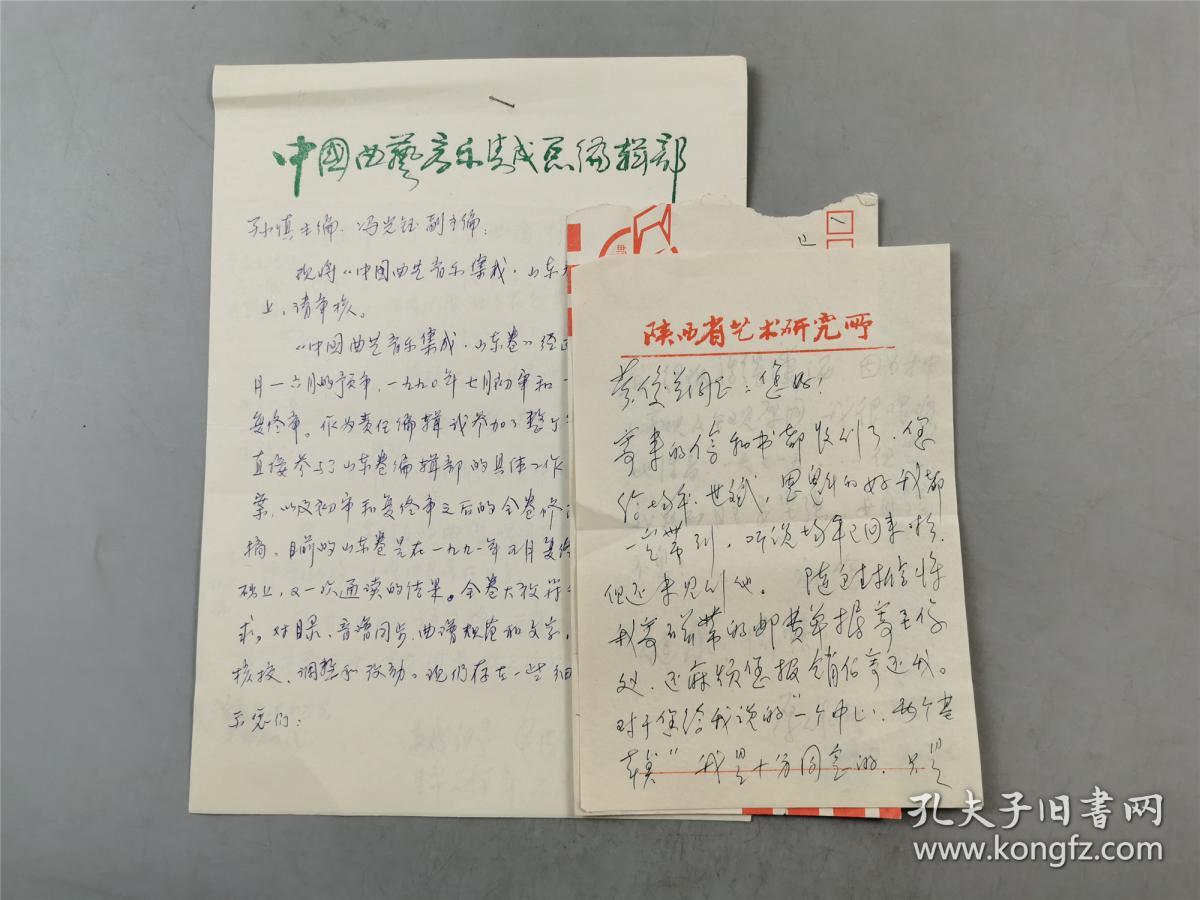 中國曲藝音乐集成总编辑部
孙慎主编、冯光钰副主编:
现将“中国曲艺音乐集成·山东
上,请审核。
“中国曲艺音乐集成·山东卷”经
月—六月的预审,一九九〇年七月初审和
复终审。作为责任编辑我参加了整个
直接参与了山东卷编辑部的具体工作
案,以及初审和复终审之后的全卷修
搞,目前的山东卷是在一九九一年五月复终
础上,又一次通读的结果。全卷大致符
求。对目录、音谱同步、曲谱规范和文字,
核校、调整和改动。现仍存在一些细
示您们:
陕西省艺术研究所
同志:您好!
寄来的信和书都收到了,您
给 世斌, 的好我都
一一带到,听说 已回来 ,
但还未见到他。 随 将
我寄磁带的邮费单据寄至你
处,还麻烦您报销后寄还我。
对于您给我说的“一个中心,两个基
” 我是十分同意的,只是
孔夫子旧书网
www.kongfz.com